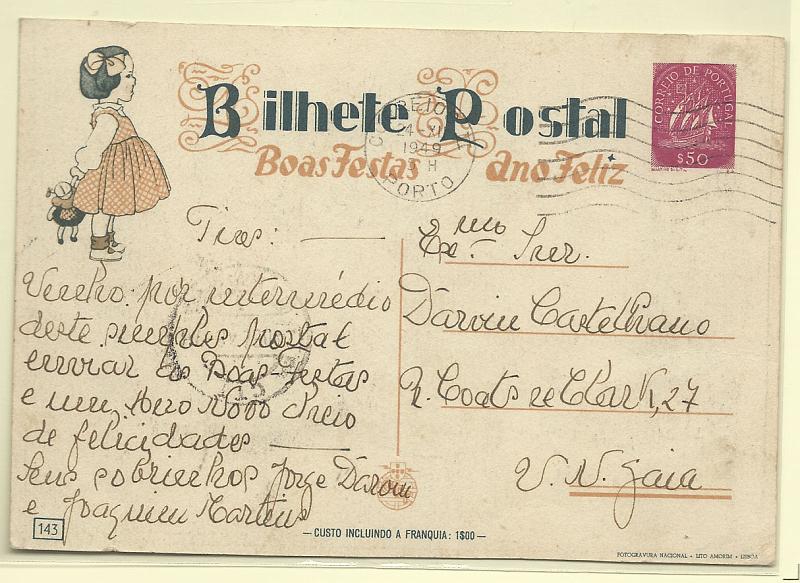 Bilhete Postal
Boas Festas Ano Feliz
CORREIO DE PORTUGAL
$50
1949
PORTO
Tios:
Venho por intermédio
deste simples postal
enviar as Boas-festas
e um Ano Novo cheio
de felicidades
Seus sobrinhos Jorge Darvin
e Joaquim Martins
Exmo. Snr.
Darvin Castelhano
R. Coats & Clark, 27
V. N. Gaia
143
— CUSTO INCLUINDO A FRANQUIA: 1$00 —
FOTOGRAVURA NACIONAL - LITO AMORIM - LISBOA